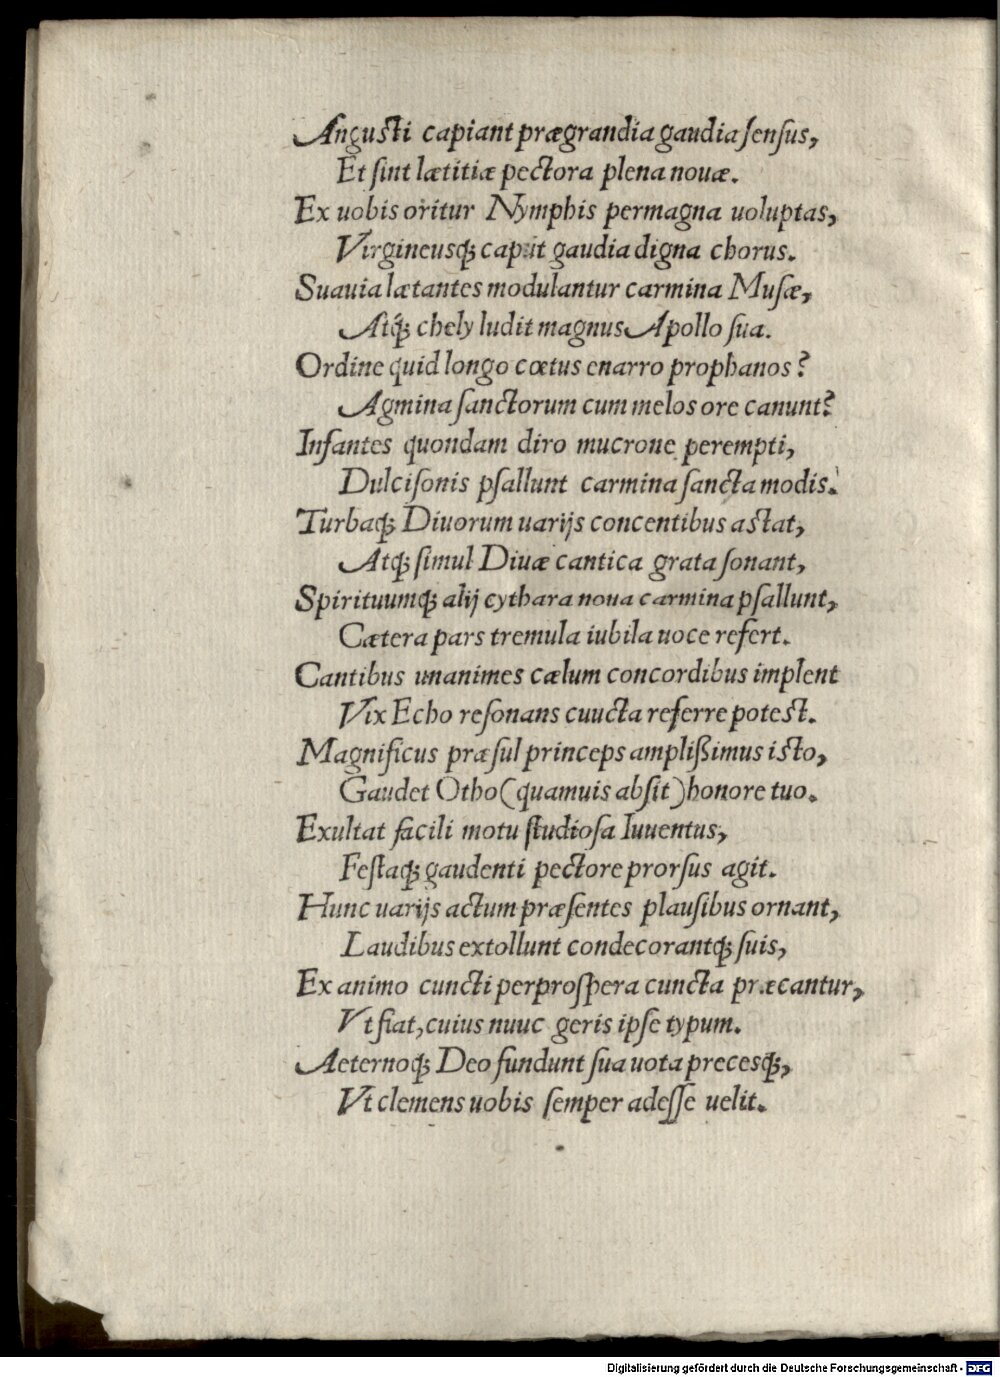 Angusti capiant prægrandia gaudia ſenſus,
Et ſint lætitiæ pectora plena nouæ.
Ex uobis oritur Nymphis permagna uoluptas,
Virgineusq́; capit gaudia digna chorus.
Suauia lætantes modulantur carmina Muſæ,
Atq́; chely ludit magnus Apollo ſua.
Ordine quid longo cœtus enarro prophanos?
Agmina ſanctorum cum melos ore canunt?
Infantes quondam diro mucrone perempti,
Dulciſonis pſallunt carmina ſancta modis.
Turbaq́; Diuorum uarijs concentibus aſtat,
Atq́; ſimul Diuæ cantica grata ſonant,
Spirituumq́; alij cythara noua carmina pſallunt,
Cætera pars tremula iubila uoce refert.
Cantibus unanimes cælum concordibus implent
Vix Echo reſonans cuucta referre poteſt.
Magnificus præſul princeps ampliſsimus iſto,
Gaudet Otho (quamuis abſit) honore tuo.
Exultat facili motu ſtudioſa Iuuentus,
Feſtaq́; gaudenti pectore prorſus agit.
Hunc uarijs actum præſentes plauſibus ornant,
Laudibus extollunt condecorantq́; ſuis,
Ex animo cuncti perproſpera cuncta præcantur,
Vt fiat, cuius nuuc geris ipſe typum.
Aeternoq́; Deo fundunt ſua uota precesq́;,
Vt clemens uobis ſemper adeſſe uelit.
Digitalisierung gefördert durch die Deutsche Forschungsgemeinschaft - DFG